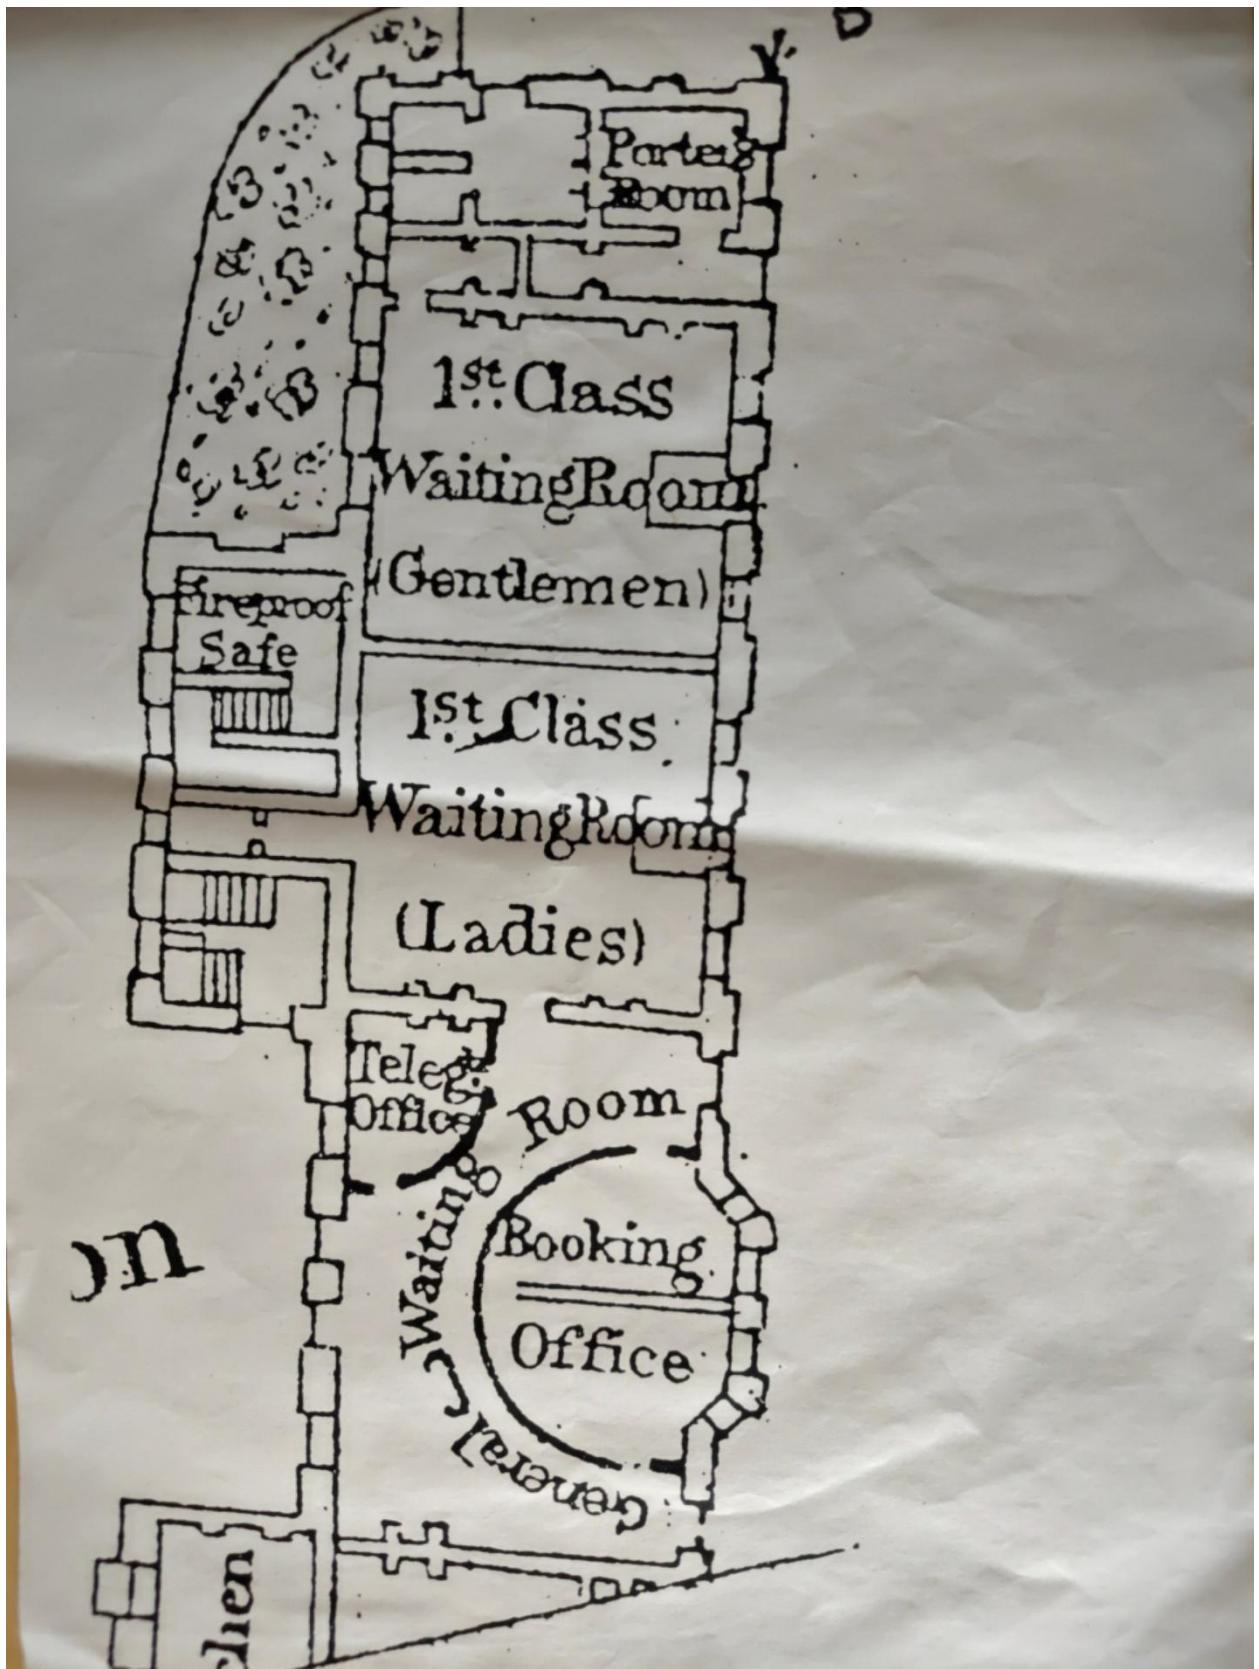 Porters
Room
1st. Class
Waiting Room
(Gentlemen)
Fireproof
Safe
1st. Class
Waiting Room
(Ladies)
Teleg.
Office
General Waiting Room
Booking
Office
on
chen